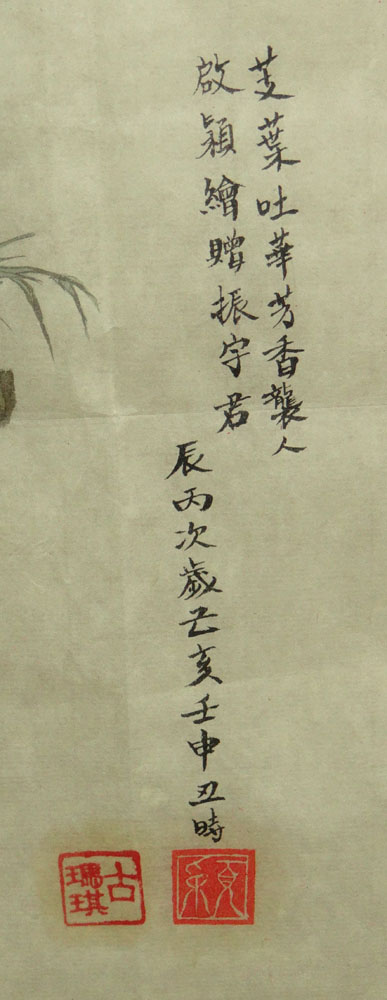 芰葉吐華芳香襲人
啟穎繪贈振宇君
辰丙次歲乙亥壬申丑時
穎
古瓗琪